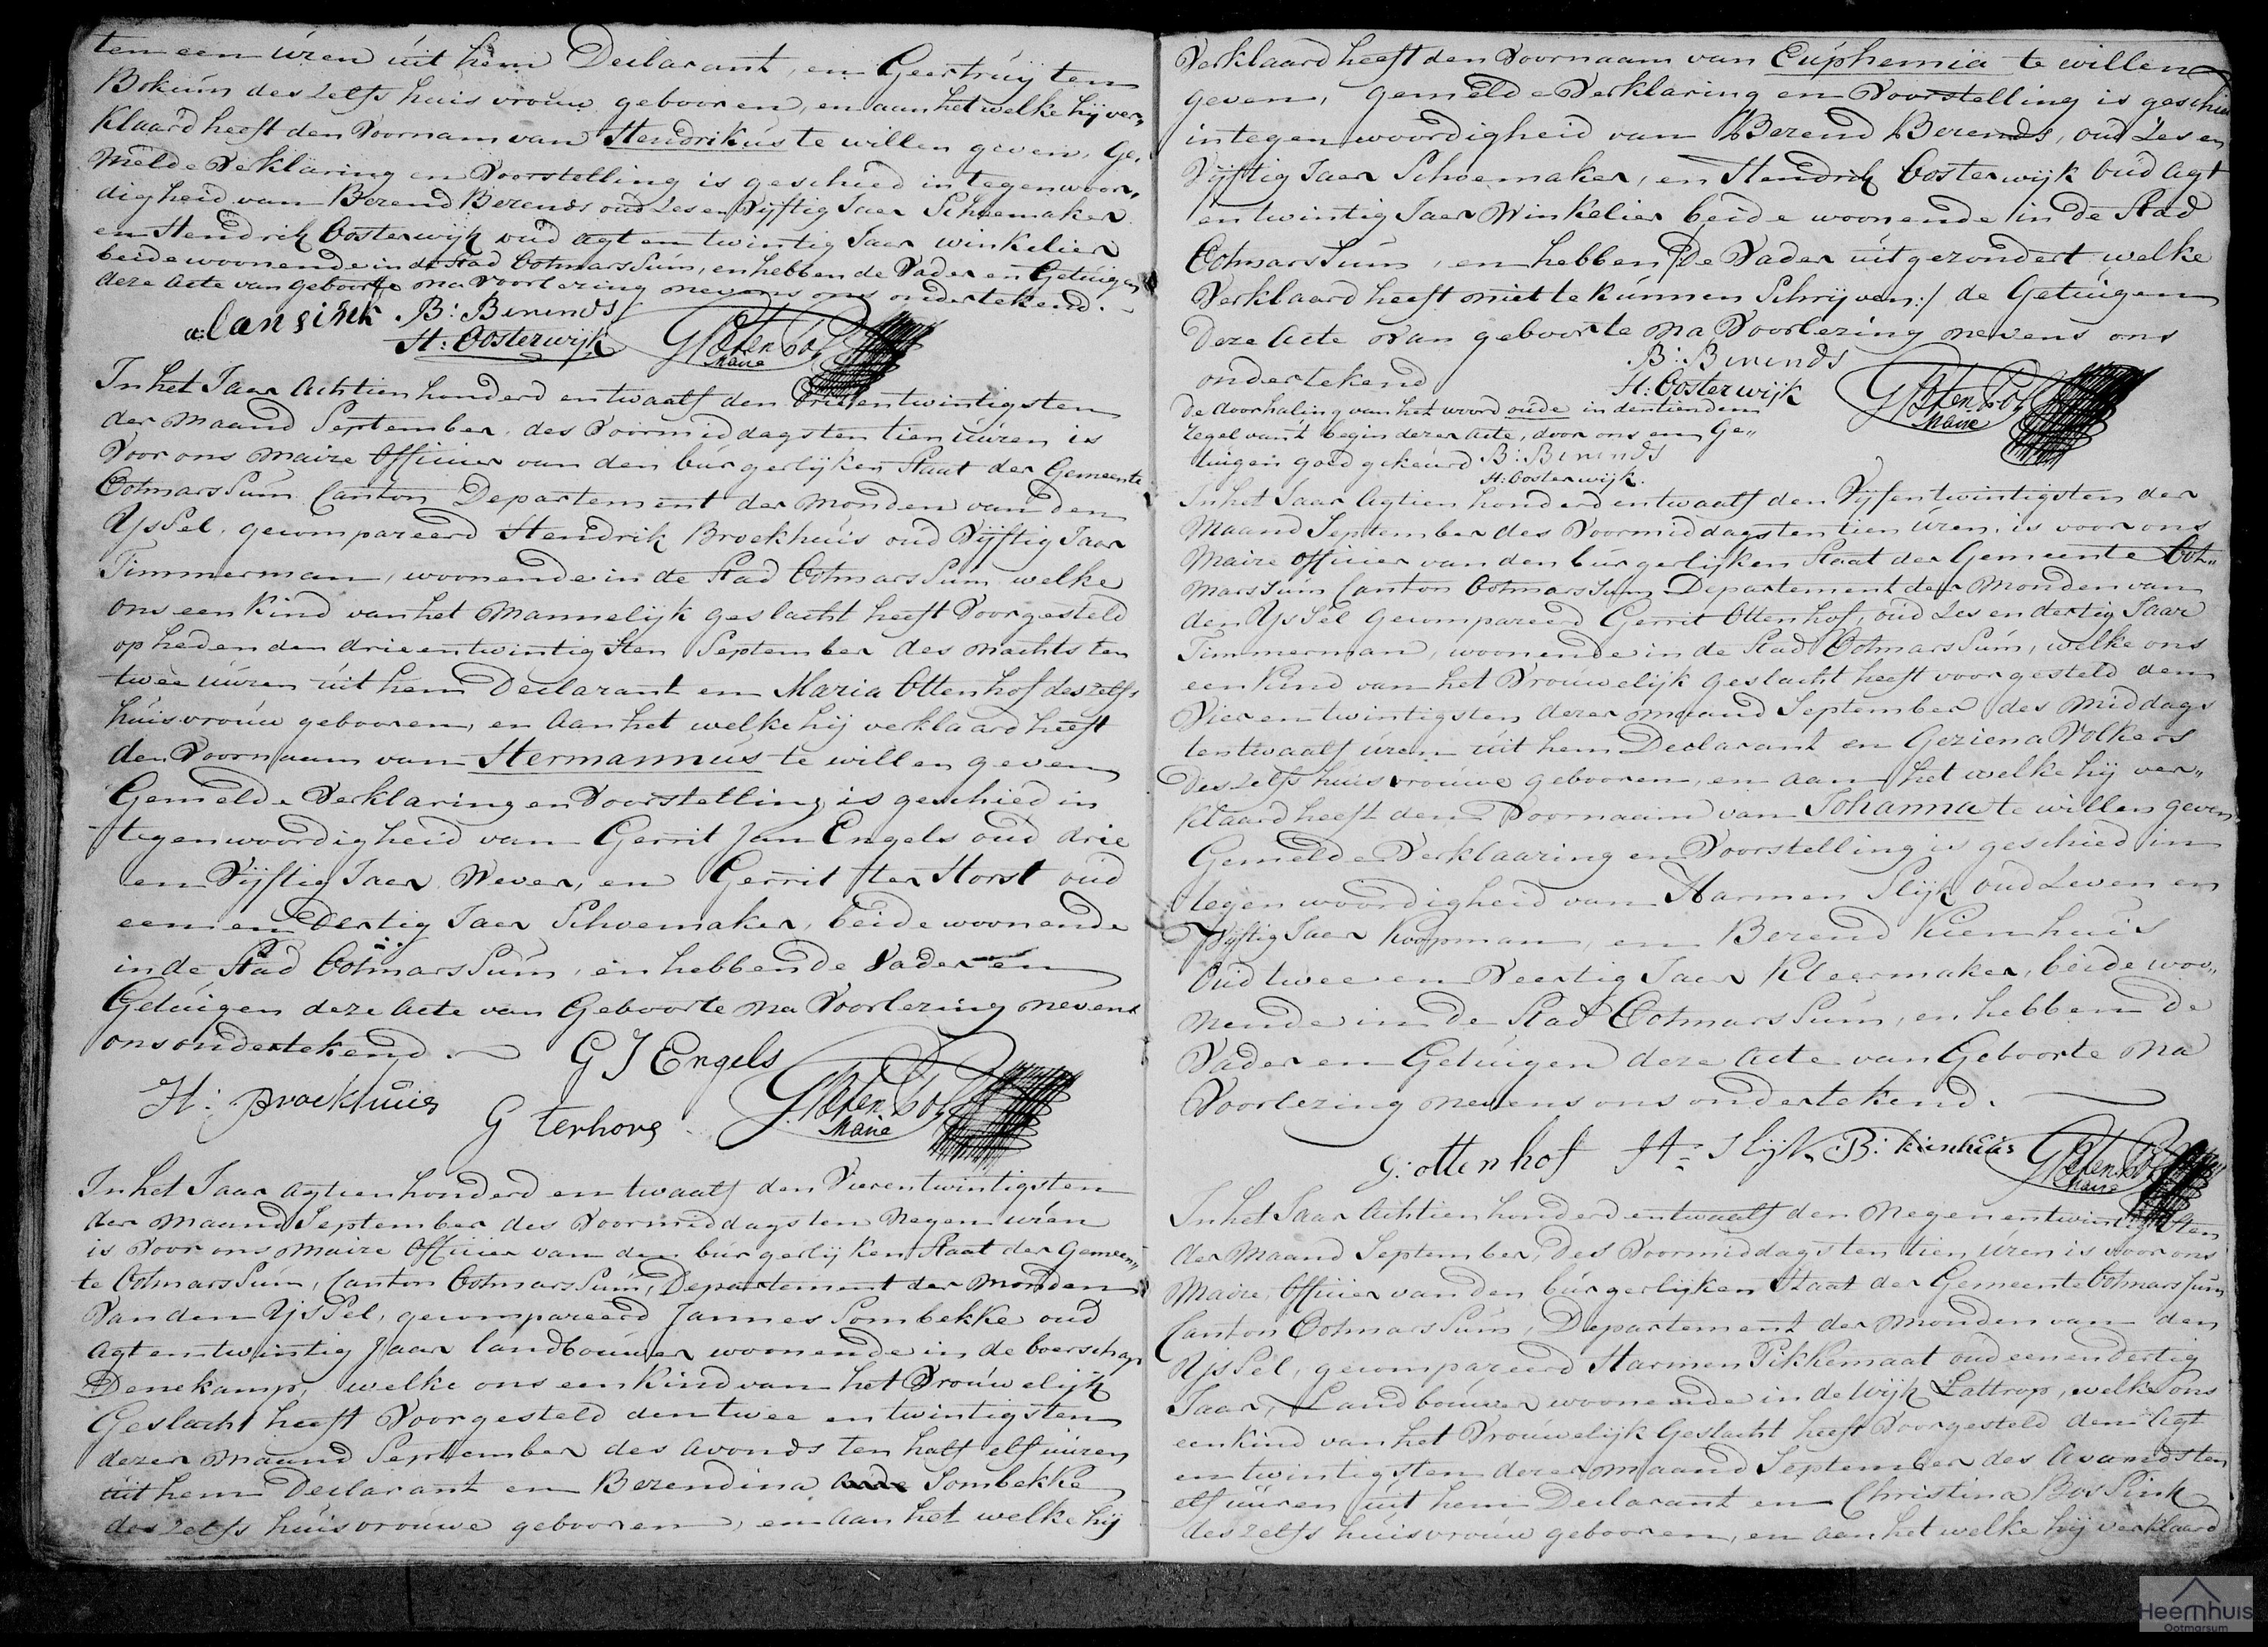 ten een úren úit hem Declarant, en Geertrúij ten
Bokúm deszelfs huisvroúw gebooren, en aan het welke hij ver„
klaard heeft den Voornam van Hendrikús te willen geven, Ge„
melde Verklaring en Voorstelling is geschied in tegenwoor„
digheid van Berend Berends oud Zes en Vijftig Jaer Schoemaker
en Hendrik Oosterwijk oúd agt en twintig Jaer winkelier
beide woonende in de Stad Ootmarssúm, en hebben de Vader en Getúigen
deze acte van geboorte na voorlezing nevens ons ondertekend.
a: lansink B: Berends
H: Oosterwijk
Maire
In het Jaar Achtien honderd en twaalf den Drie en twintigsten
der Maand September des Voormiddags ten tien úúren is
Voor ons Maire Officier van den búrgerlijken Staat der Gemeente
Ootmarssúm Canton Departement der Monden van den
Yssel, gecompareerd Hendrik Broekhúis oud Vijftig Jaar
Timmerman, woonende in de Stad Ootmarssúm welke
ons een Kind van het Mannelijk geslacht heeft Voorgesteld
op heden den drie en twintigsten September des nachts ten
twee úúren úit hem Declarant en Maria Ottenhof deszelfs
húisvroúw gebooren, en aan het welke hij verklaard heeft
den Voornaam van Hermannús te willen geven
Gemelde Verklaring en Voorstelling is geschied in
tegenwoordigheid van Gerrit Jan Engels oud drie
en Vijftig Jaer Wever, en Gerrit ter Horst oud
een en Dertig Jaer Schoemaker, beide woonende
in de Stad Ootmarssúm, en hebben de Vader en
Getúigen deze Acte van Geboorte na Voorlezing nevens
ons ondertekend. G J Engels
H: Broekhuis G terhors
Maire
In het Jaar agtien honderd en twaalf den Vier en twintigsten
der Maand September des Voormiddags ten Negen úren
is Voor ons Maire Officier van den búrgerlijken Staat der Gemeen„
te Ootmarssúm, Canton Ootmarssúm, Departement der Monden
Van den Yssel, gecompareerd Jannes Sombekke oud
agt en twintig Jaar landboúwer woonende in de boerschap
Denekamp, welke ons een Kind van het Vroúwelijk
Geslacht heeft Voorgesteld den twee en twintigsten
dezer Maand September des avonds ten half elf úúren
úit hem Declarant en Berendina Sombekke
deszelfs húisvroúwe gebooren, en aan het welke hij
Verklaard heeft den Voornaam van Eúphemia te willen
geven, gemelde Verklaring en Voorstelling is geschied
in tegenwoordigheid van Berend Berends, oud Zes en
Vijftig Jaer Schoemaker, en Hendrik Oosterwijk oúd agt
en twintig Jaer Winkelier beide woonende in de Stad
Ootmarssúm, en hebben /: De Vader úitgezondert welke
Verklaard heeft niet te kúnnen Schrijven :/ de Getúigen
Deze Acte van geboorte na Voorlezing nevens ons
ondertekend B: Berends
H: Oosterwijk
Maire
de doorhaling van het woord oude in den tienden
regel van't begin dezer Acte, door ons en Ge„
tuigen goed gekeúrd B: Berends
H: Oosterwijk.
In het Jaar Agtien honderd en twaalf den Vijf en twintigsten der
Maand September des Voormiddags ten tien úren, is voor ons
Maire Officier van den búrgerlijken Staat der Gemeente Oot„
marssúm Canton Ootmarssúm Departement der Monden van
den Yssel gecompareerd Gerrit Ottenhof, oúd Zes en dertig Jaar
Timmerman, woonende in de Stad Ootmarssúm, welke ons
een Kind van het Vroúwelijk geslacht heeft voorgesteld den
Vier en twintigsten dezer maand September des Middags
ten twaalf úren úit hem Declarant en Geziena Volkers
Deszelfs húisvroúwe gebooren, en aan het welke hij ver„
klaard heeft den Voornaam van Johanna te willen geven
Gemelde Verklaaring en Voorstelling is geschied in
tegenwoordigheid van Harmen Slijk oud Zeven en
Vijftig Jaer Koopman, en Berend Kienhuis
Oúd twee en Veertig Jaer Kleermaker, beide woo„
nende in de Stad Ootmarssúm, en hebben de
Vader en Getúigen deze acte van Geboorte na
Voorlezing nevens ons ondertekend.
G: ottenhof H: Slijk B: kienhúis
Maire
In het Jaar Achtien honderd en twaalf den Negen en twintigsten
der Maand September, des Voormiddags ten tien úren is voor ons
Maire, Officier van den búrgerlijken Staat der Gemeente Ootmarssúm
Canton Ootmarssúm, Departement der Monden van den
Yssel, gecompareerd Harmen Pikkemaat oud een en dertig
Jaar, Landboúwer woonende in de Wijk Lattrop, welke ons
een kind van het Vroúwelijk Geslacht heeft Voorgesteld den Agt
en twintigsten dezer maand September des Avonds ten
elf úúren úit hem Declarant en Christina Bossink
deszelfs húisvroúw gebooren, en aan het welke hij verklaard
Heemhuis
Ootmarsum